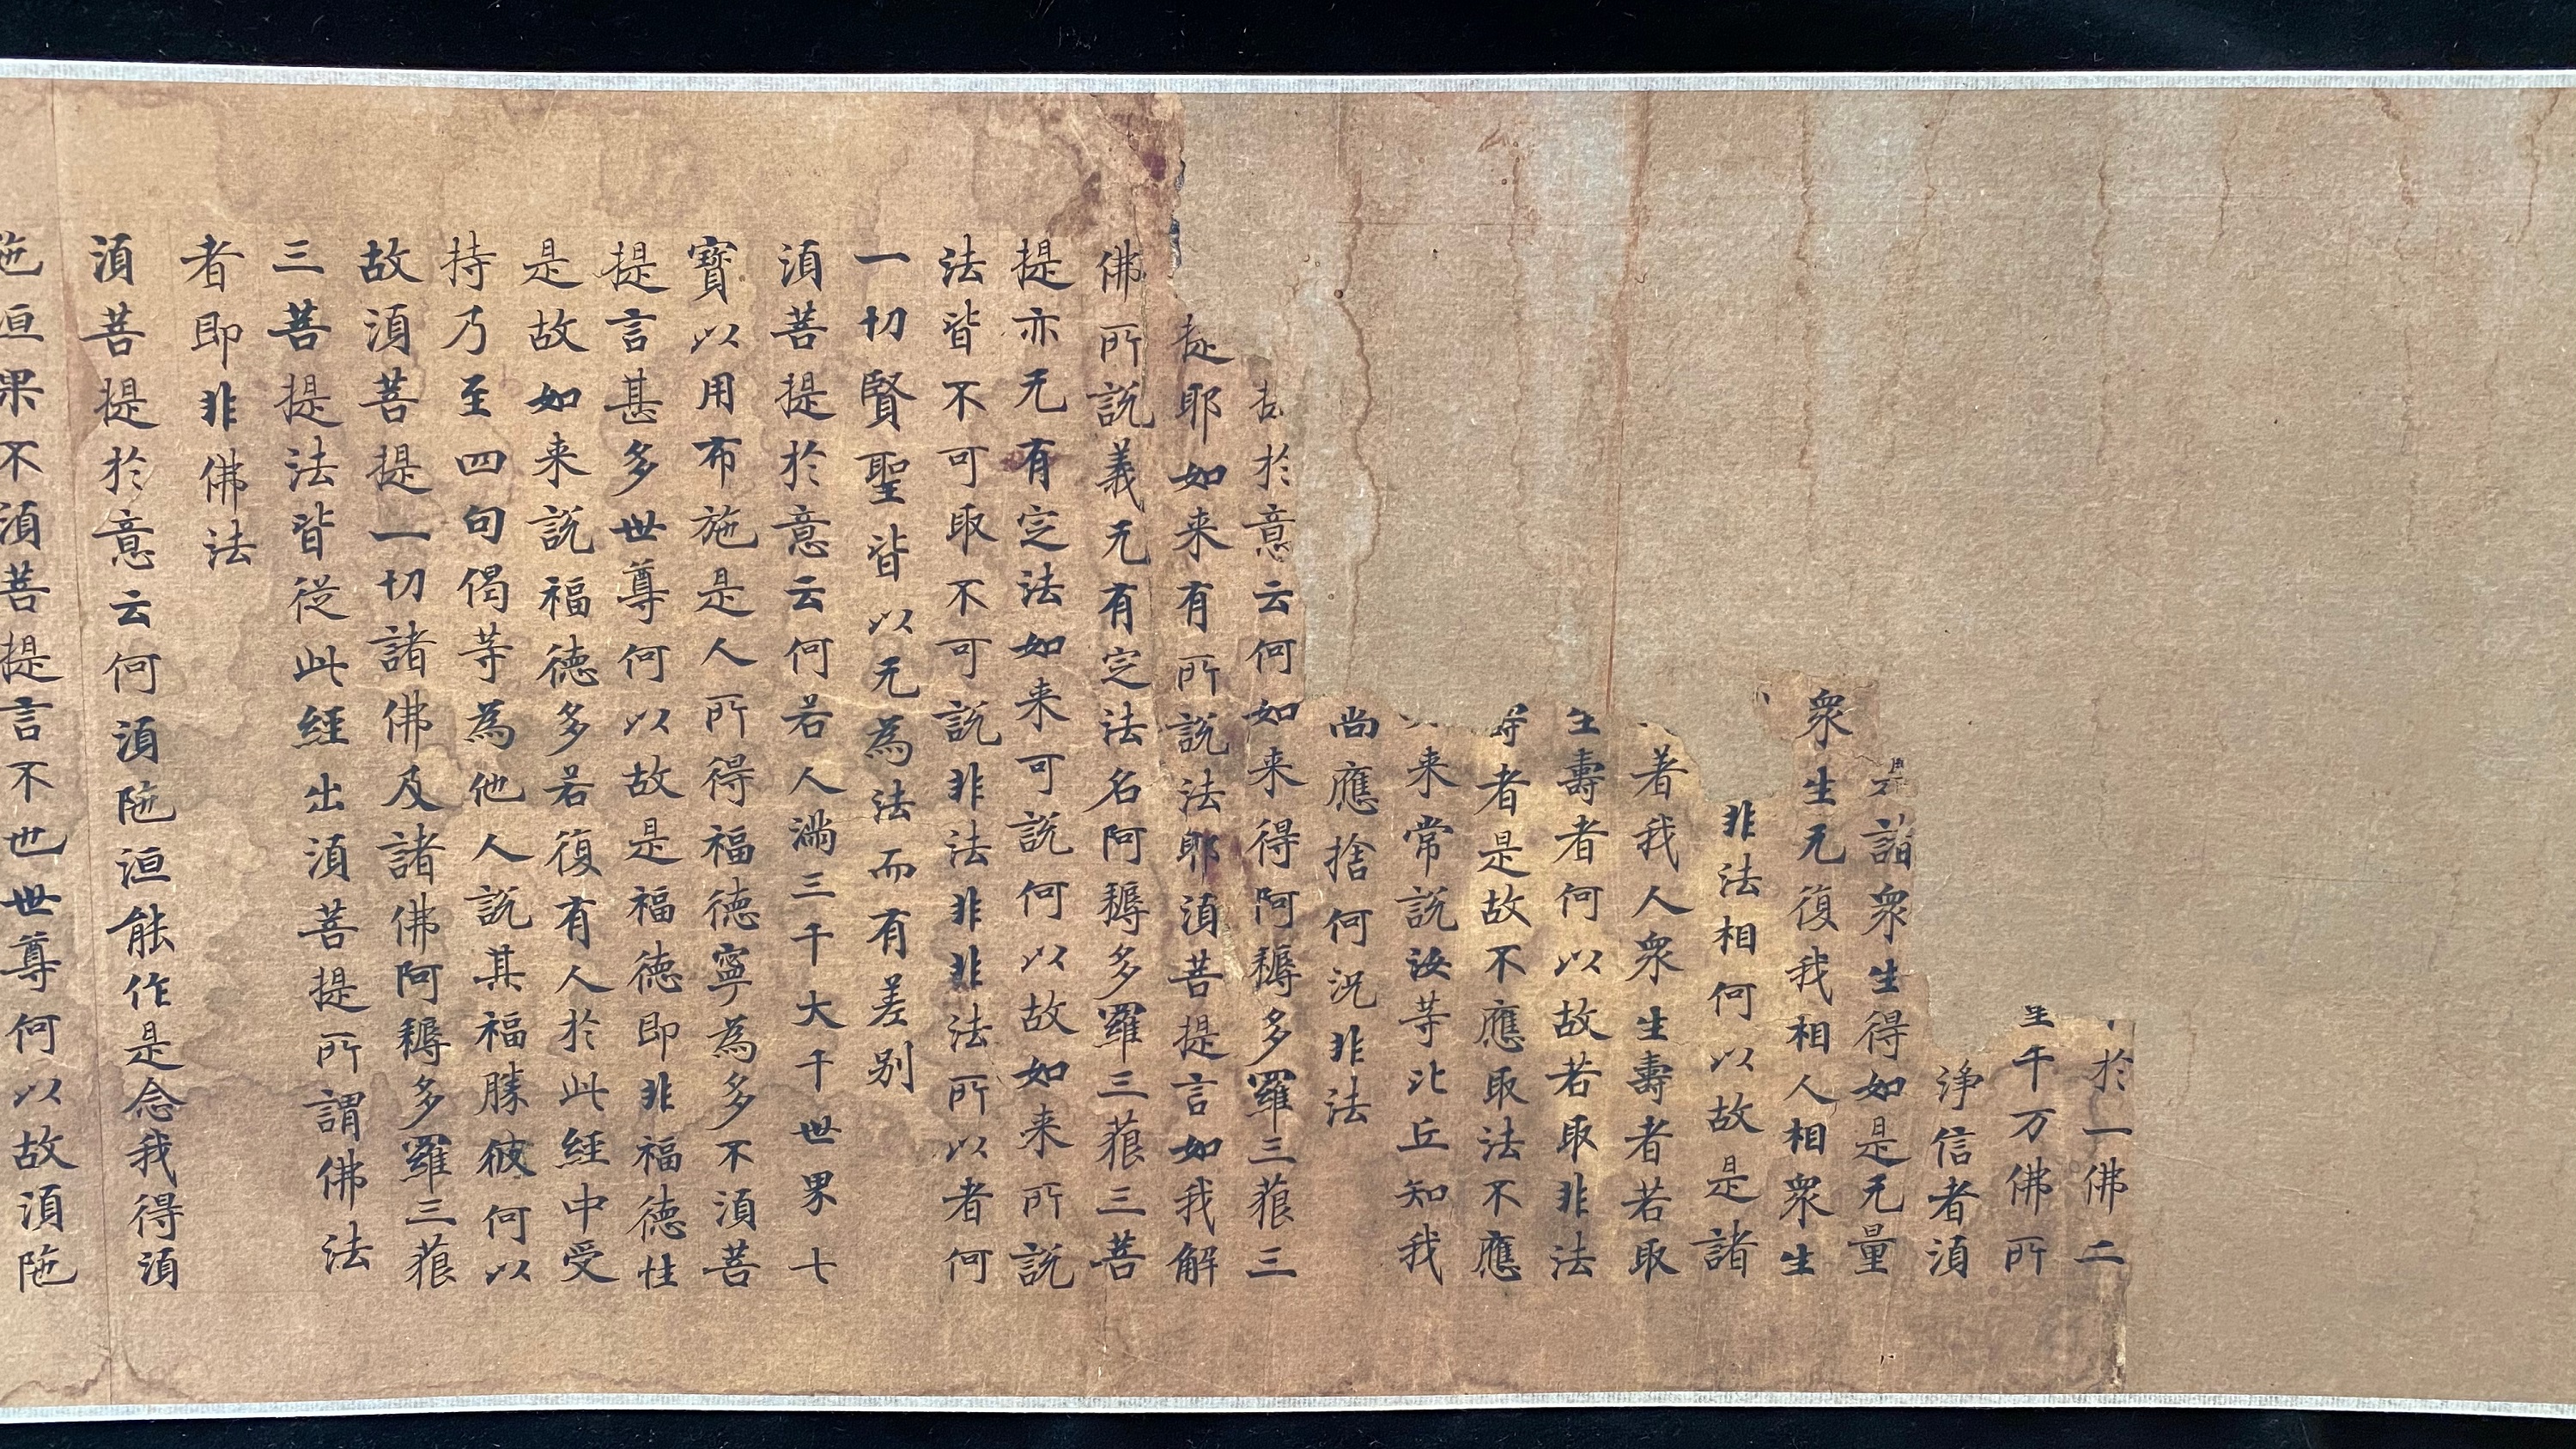 於一佛二
千万佛所
淨信者湏
諸衆生得如是无量
衆生无復我相人相衆生
非法相何以故是諸
著我人衆生壽者若取
生壽者何以故若取非法
者是故不應取法不應
来常說汝等比丘知我
尚應捨何況非法
於意云何如来得阿耨多羅三藐三
提耶如来有所說法耶湏菩提言如我解
佛所說義无有定法名阿耨多羅三藐三菩
提亦无有定法如来可說何以故如来所說
法皆不可取不可說非法非非法所以者何
一切賢聖皆以无為法而有差别
湏菩提於意云何若人滿三千大千世界七
寶以用布施是人所得福德寧為多不湏菩
提言甚多世尊何以故是福德即非福德性
是故如来說福德多若復有人於此經中受
持乃至四句偈等為他人說其福勝彼何以
故湏菩提一切諸佛及諸佛阿耨多羅三藐
三菩提法皆從此經出湏菩提所謂佛法
者即非佛法
湏菩提於意云何湏陁洹能作是念我得湏
陁洹果不湏菩提言不也世尊何以故湏陁